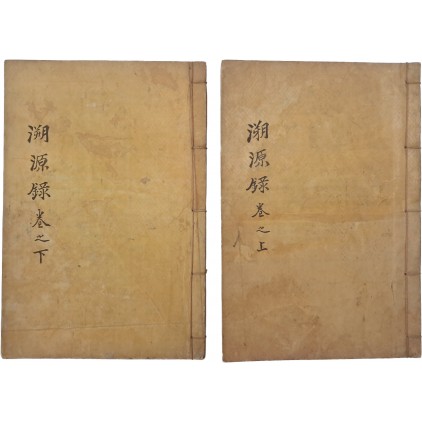 溯源錄 卷之上
溯源錄 卷之下